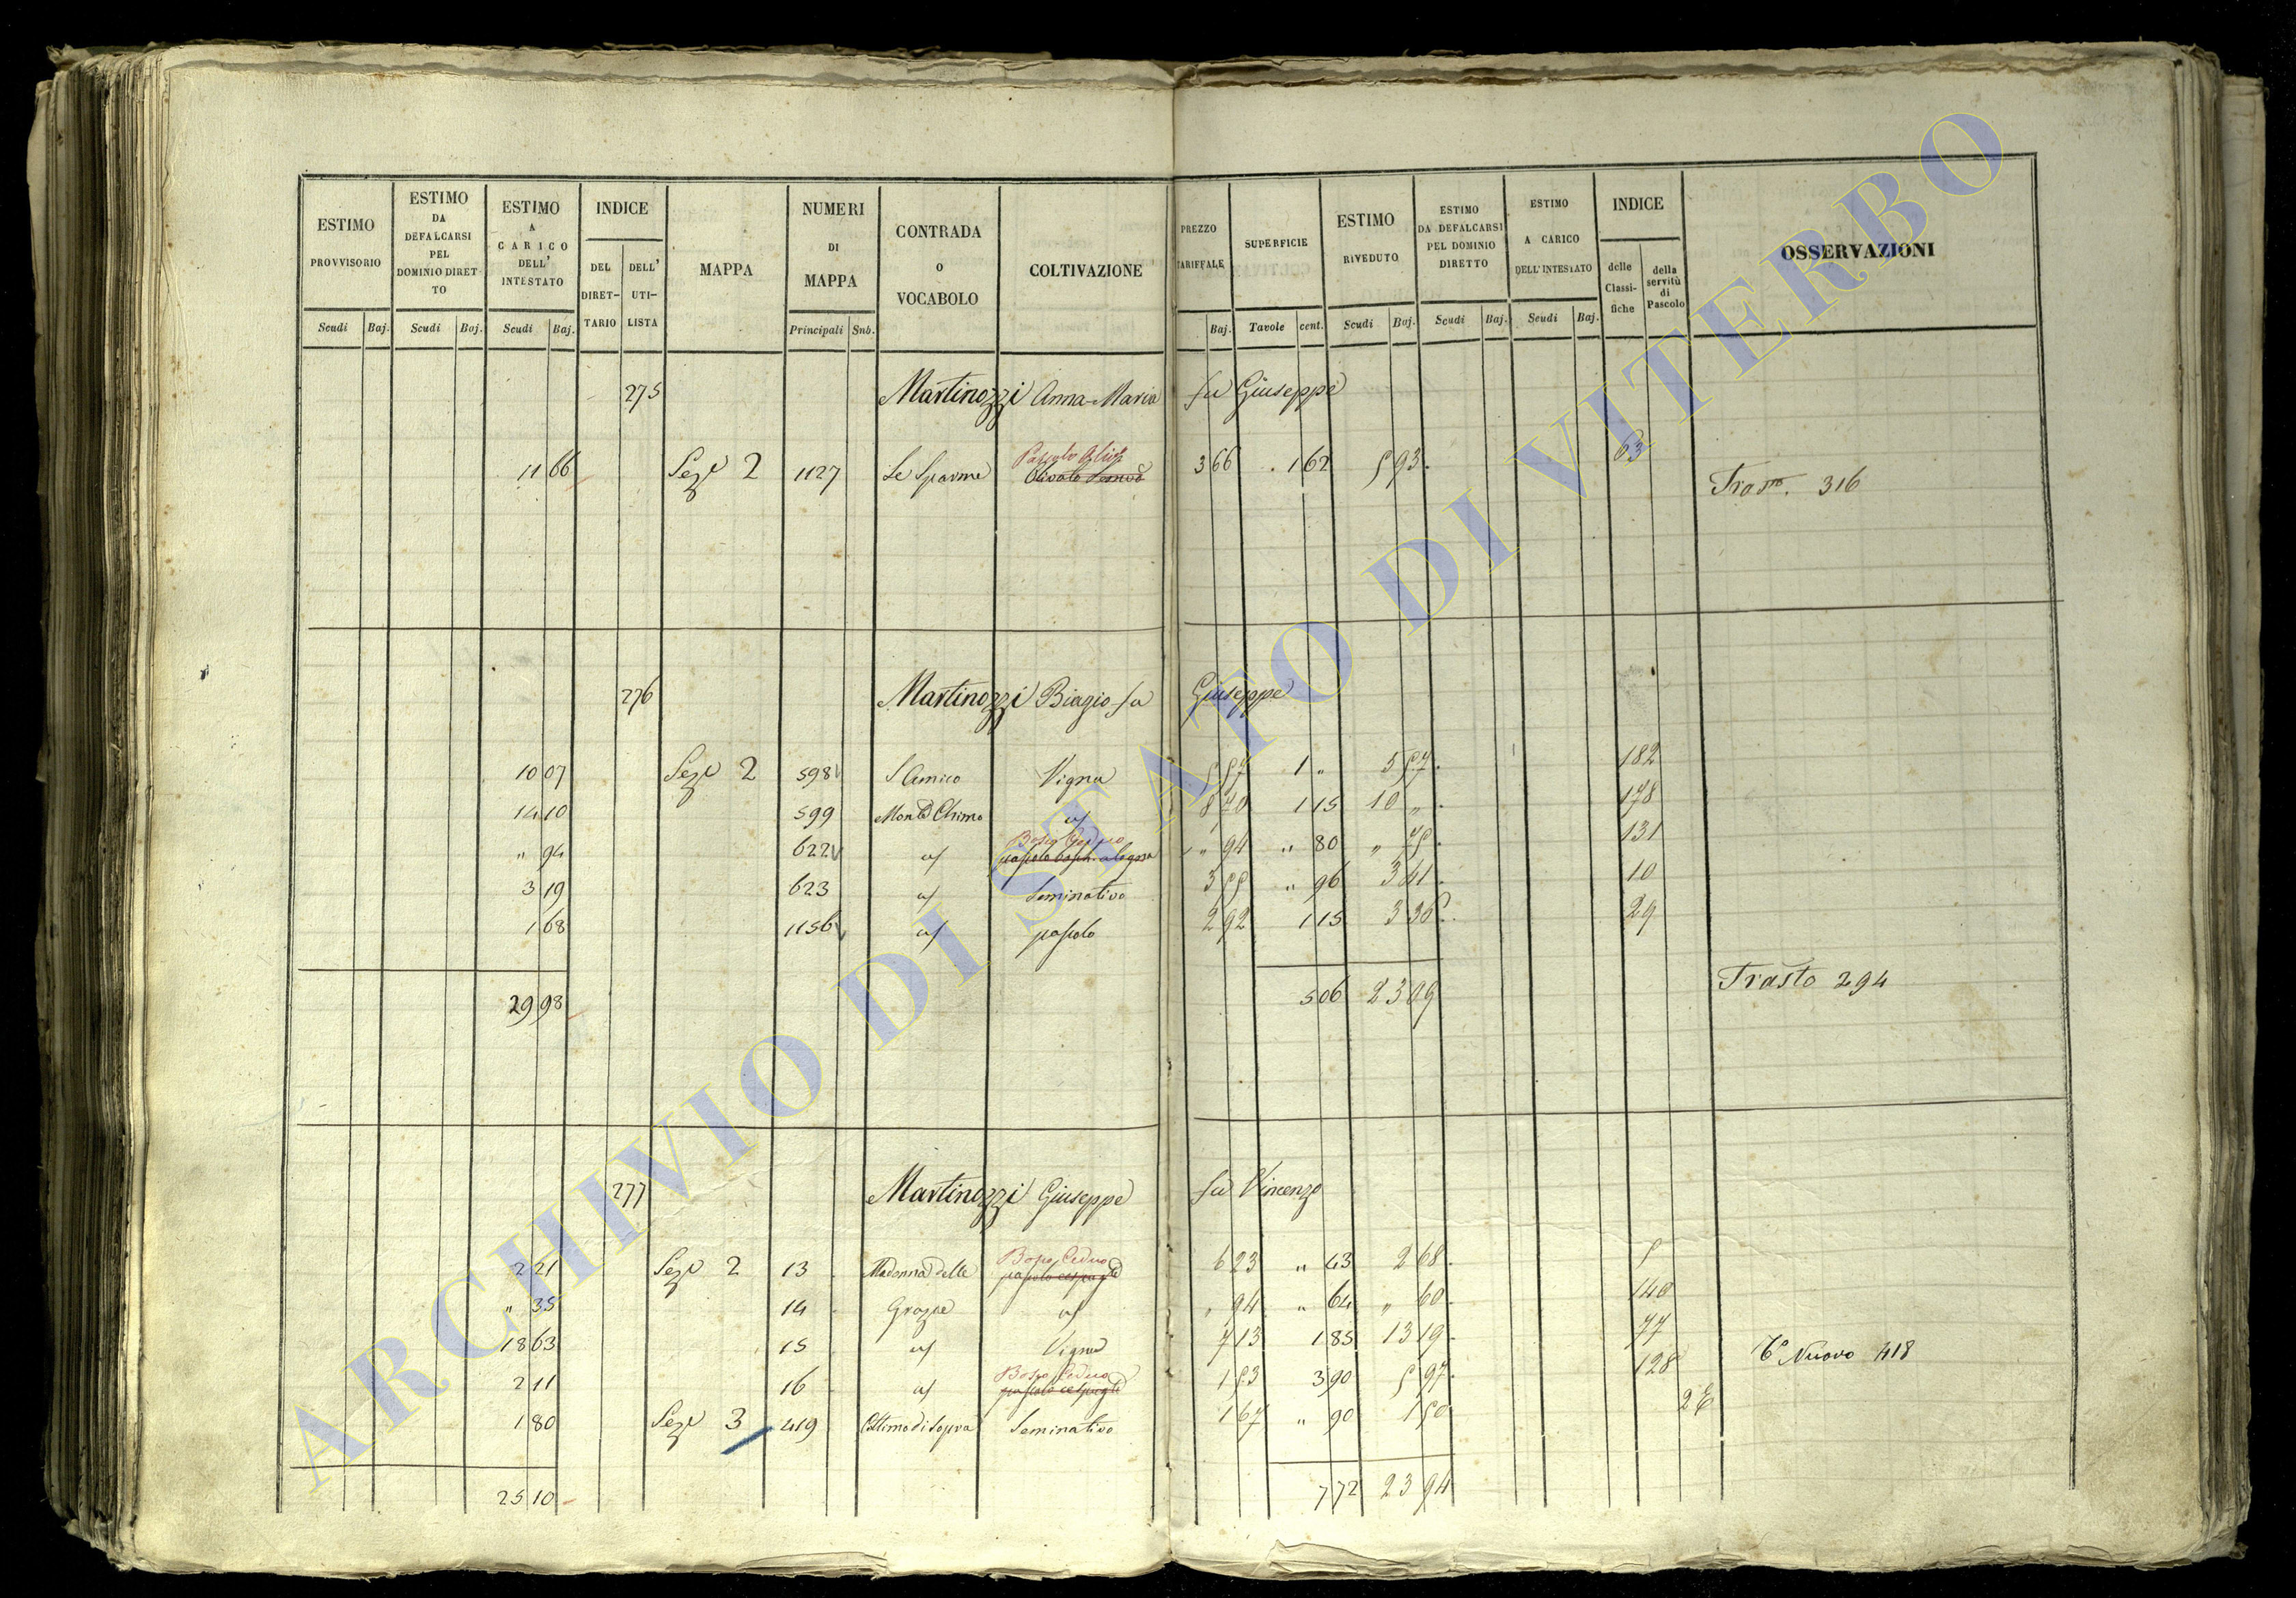 ESTIMO PROVVISORIO | ESTIMO DA DEFALCARSI PEL DOMINIO DIRETTO | ESTIMO A CARICO DELL' INTESTATO | INDICE | MAPPA | NUMERI DI MAPPA | CONTRADA O VOCABOLO | COLTIVAZIONE | PREZZO TARIFFALE | SUPERFICIE | ESTIMO RIVEDUTO | ESTIMO DA DEFALCARSI PEL DOMINIO DIRETTO | ESTIMO A CARICO DELL' INTESTATO | INDICE | OSSERVAZIONI
DEL DIRET-TARIO | DELL' UTI-LISTA | delle Classi-fiche | della servitù di Pascolo
Scudi | Baj. | Scudi | Baj. | Scudi | Baj. | Principali | Snb. | Baj. | Tavole | cent. | Scudi | Baj. | Scudi | Baj. | Scudi | Baj.
275 Martinozzi Anna-Maria fu Giuseppe
11 66 Seze 2 1127 Le Sparme Olivato 3 66 1 62 5 93 63
316
276 Martinozzi Biagio fu Giuseppe
10 07 Seze 2 598 S Amico Vigna 5 57 1 " 5 57 182
14 10 599 Monte Chimo a/ 8 70 1 15 10 " 178
" 94 622 a/ Bosco Ceduo " 94 " 80 " 75 131
3 19 623 a/ Seminativo 3 55 " 96 3 41 10
1 68 1156 a/ pascolo 2 92 1 15 3 36 29
29 98 5 06 23 09
Trasto 294
277 Martinozzi Giuseppe fu Vincenzo
2 21 Seze 2 13 Madonna delle Bosco Ceduo 6 23 " 43 2 68 5
" 35 14 Grazie a/ " 94 " 64 " 60 140
18 63 15 a/ Vigna 7 13 1 85 13 19 77
2 11 16 a/ Bosco Ceduo 1 53 3 90 5 97 128
1 80 Seze 3 419 di sopra Seminativo 1 67 " 90 1 50 2
Nuovo 418
25 10 7 72 23 94
ARCHIVIO DI STATO DI VITERBO